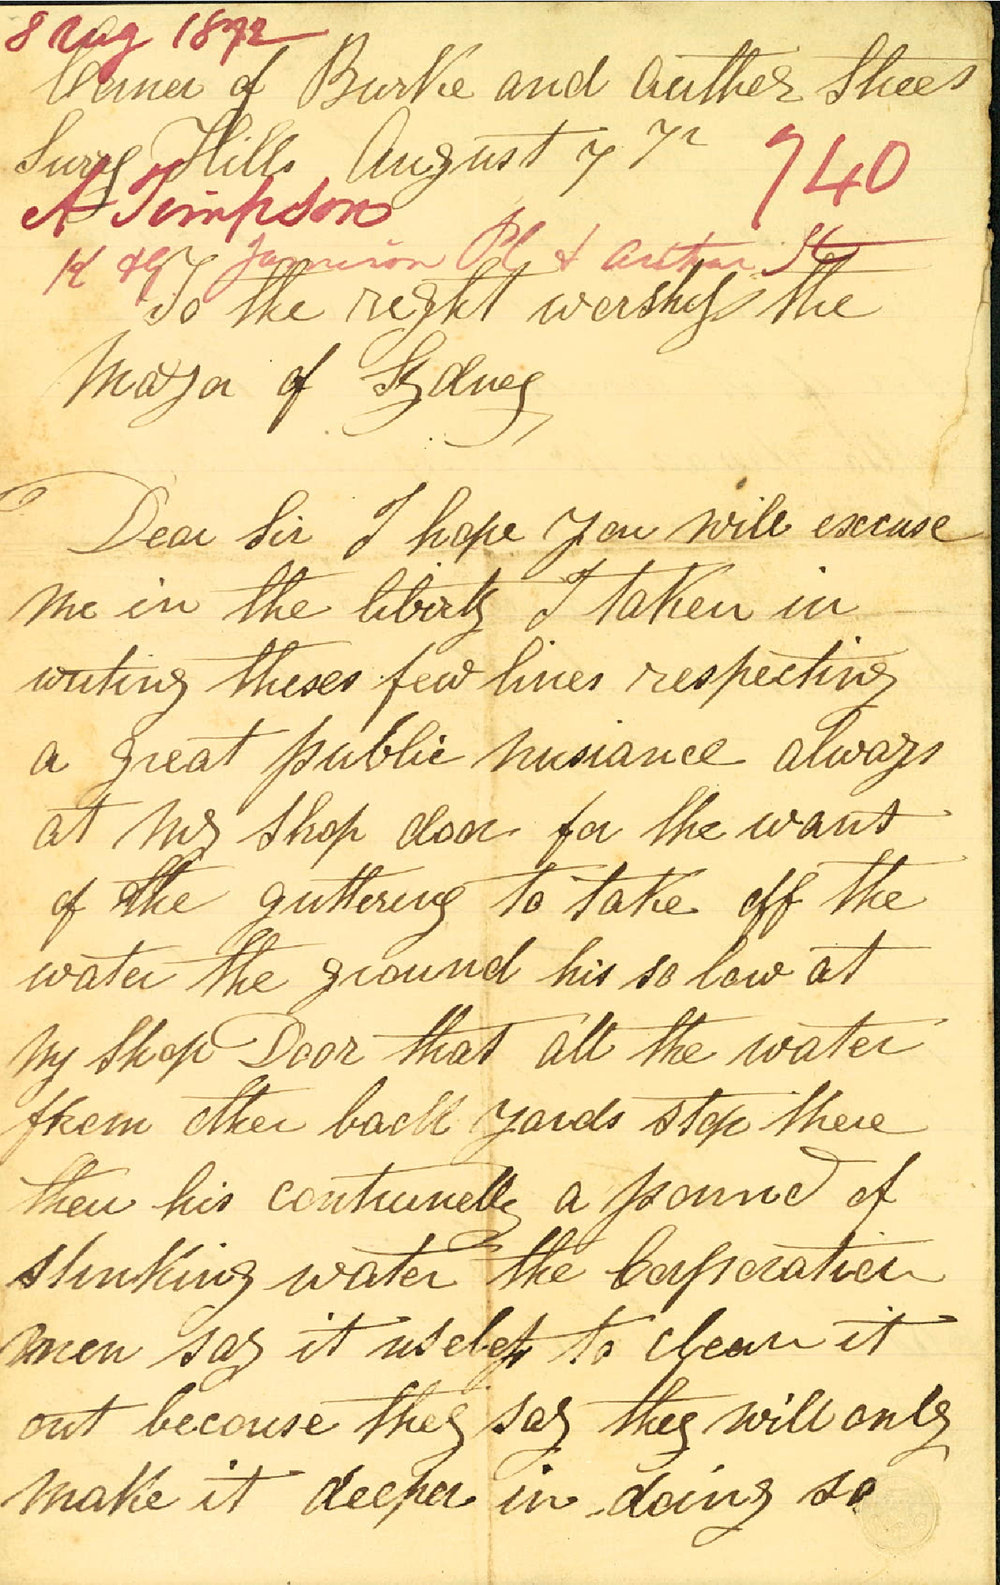 8 Aug 1872
Corner of Burke and Auther Streets
Surry Hills August 7 72
740
A Timpson
K &G Jamison Pl & Arthur St
To the reght worship the
Mayor of Sydney
Dear Sir I hope you will excuse
me in the liberty I taken in
writing theses few lines respecting
a great public nusiance always
at my shop door for the want
of the guttering to take off the
water the ground his so low at
my Shop Door that all the water
from other back yards stop there
their his contunelly a pound of
stinking water the Corporation
men say it useless to clean it
out becouse they say they will only
make it deeper in doing so